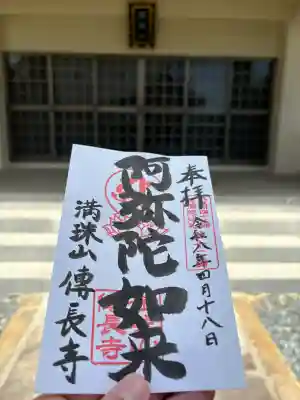 奉拝
令和八年四月十八日
阿弥陀如来
満珠山 傳長寺